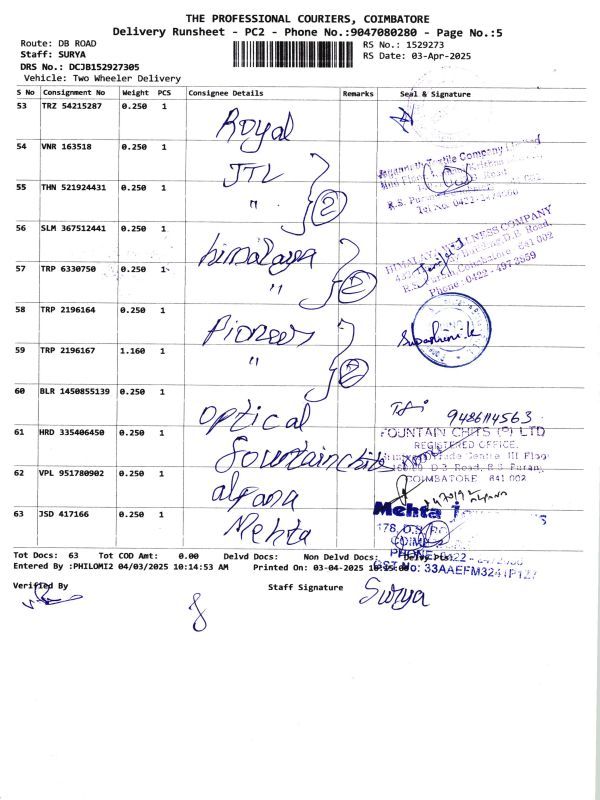 THE PROFESSIONAL COURIERS, COIMBATORE
Delivery Runsheet - PC2 - Phone No.:9047080280 - Page No.:5
Route: DB ROAD
RS No.: 1529273
Staff: SURYA
RS Date: 03-Apr-2025
DRS No.: DCJB152927305
Vehicle: Two Wheeler Delivery
S No Consignment No Weight PCS Consignee Details Remarks Seal & Signature
53 TRZ 54215287 0.250 1 Royal
54 VNR 163518 0.250 1 JTL
55 THN 521924431 0.250 1 " 2
56 SLM 367512441 0.250 1 himalaya
57 TRP 6330750 0.250 1 " 2
58 TRP 2196164 0.250 1 Pioneer
59 TRP 2196167 1.160 1 " 2
60 BLR 1450855139 0.250 1 optical 9486114563
61 HRD 335406450 0.250 1 fountain chits
FOUNTAIN CHITS (P) LTD
REGISTERED OFFICE.
Trade Centre III Floor
D.B Road, R.S Puram,
COIMBATORE 641 002
62 VPL 951780902 0.250 1 alpana
63 JSD 417166 0.250 1 Mehta
Mehta
Textile Company Limited
HIMALAYA WELLNESS COMPANY
D.B. Road,
Coimbatore 641 002
Phone: 0422 - 497 3859
Tot Docs: 63 Tot COD Amt: 0.00 Delvd Docs: Non Delvd Docs:
Entered By :PHILOMI2 04/03/2025 10:14:53 AM Printed On: 03-04-2025
Verified By Staff Signature Surya